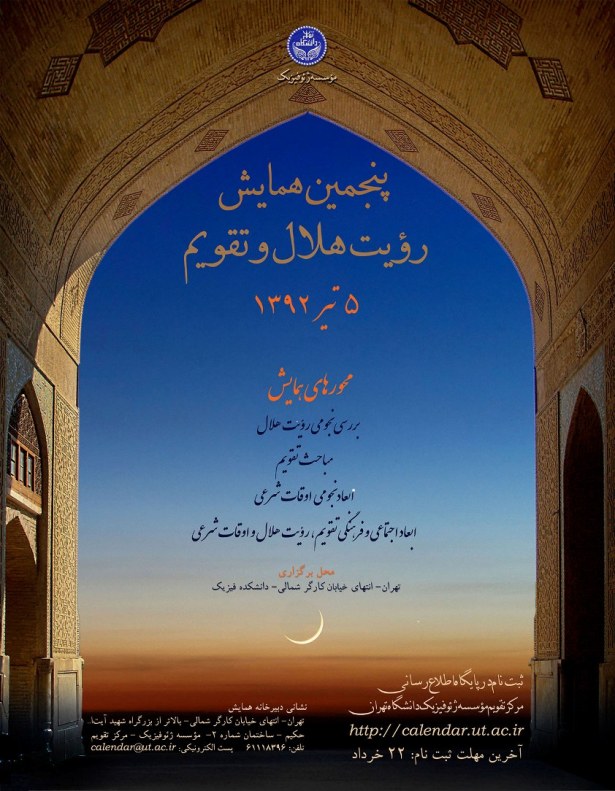 مؤسسه ژئوفیزیک
پنجمین همایش
رؤیت هلال و تقویم
۵ تیر ۱۳۹۲
محورهای همایش
بررسی نجومی رؤیت هلال
مباحث تقویم
ابعاد نجومی اوقات شرعی
ابعاد اجتماعی و فرهنگی تقویم، رؤیت هلال و اوقات شرعی
محل برگزاری
تهران- انتهای خیابان کارگر شمالی- دانشکده فیزیک
ثبت نام در پایگاه اطلاع رسانی
مرکز تقویم مؤسسه ژئوفیزیک دانشگاه تهران
http://calendar.ut.ac.ir
آخرین مهلت ثبت نام: ۲۲ خرداد
نشانی دبیرخانه همایش
تهران- انتهای خیابان کارگر شمالی- بالاتر از بزرگراه شهید آیت‌ا..
حکیم - ساختمان شماره ۲- مؤسسه ژئوفیزیک - مرکز تقویم
تلفن: ۶۱۱۱۸۳۹۶ پست الکترونیکی: calendar@ut.ac.ir